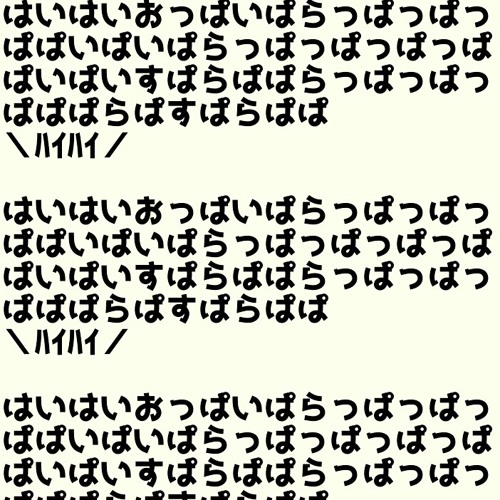 はいはいおっぱいぱらっぱっぱっ
ぱぱいぱいぱらっぱっぱっぱっぱ
ぱいぱいすぱらぱぱらっぱっぱっ
ぱぱぱらぱすぱらぱぱ
＼ﾊｲﾊｲ／
はいはいおっぱいぱらっぱっぱっ
ぱぱいぱいぱらっぱっぱっぱっぱ
ぱいぱいすぱらぱぱらっぱっぱっ
ぱぱぱらぱすぱらぱぱ
＼ﾊｲﾊｲ／
はいはいおっぱいぱらっぱっぱっ
ぱぱいぱいぱらっぱっぱっぱっぱ
ぱいぱいすぱらぱぱらっぱっぱっ
ぱぱぱらぱすぱらぱぱ